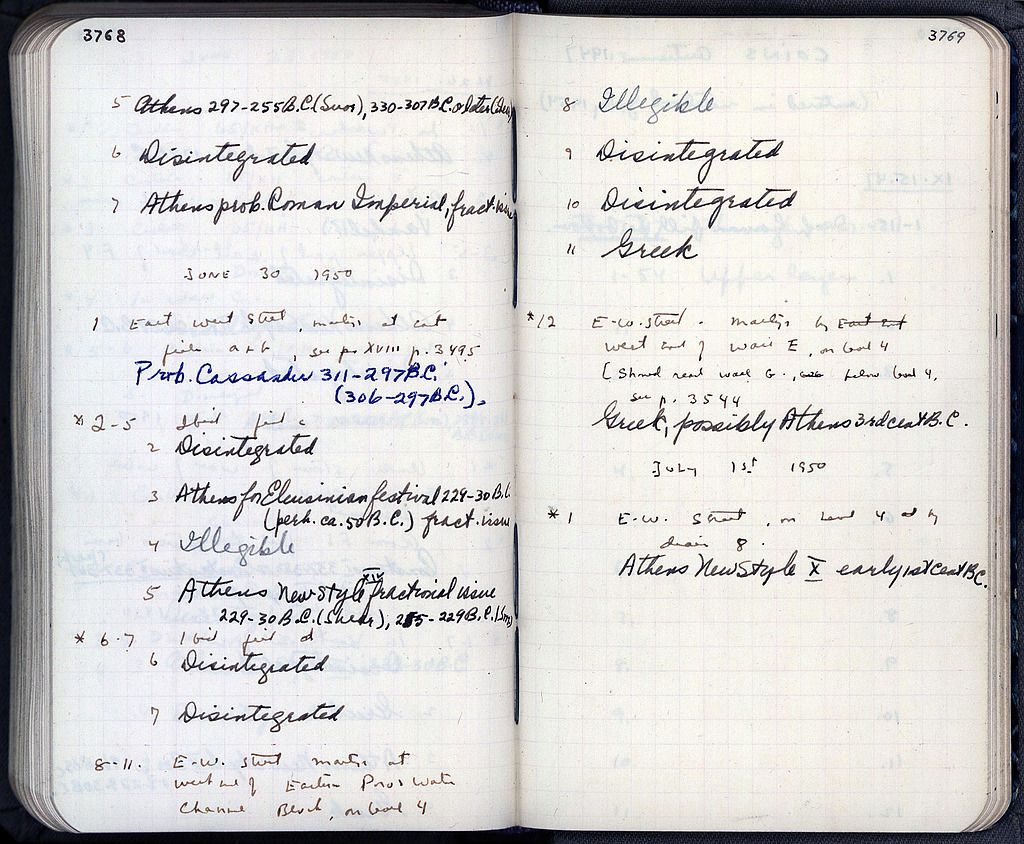 3768
5 Athens 297-255B.C.(Svor.), 330-307B.C. or later
6 Disintegrated
7 Athens prob. Roman Imperial, fract. issue
JUNE 30 1950
1 East west Street, at
a + b, see p. XVIII p. 3495
Prob. Cassander 311-297B.C.
(306-297B.C.).
* 2-5 Ibid c
2 Disintegrated
3 Athens for Eleusinian festival 229-30B.C.
(perh. ca. 50B.C.) fract. issue
4 Illegible
5 Athens New Style XIV fractional issue
229-30B.C.(Shear), 255-229B.C.
* 6-7 Ibid d
6 Disintegrated
7 Disintegrated
8-11. E-W. Street at
west end of Eastern Poros Water
Channel Block, on level 4
3769
8 Illegible
9 Disintegrated
10 Disintegrated
11 Greek
*12 E-W. Street. by East end
west end of wall E, on level 4
[Should read wall G., below level 4,
see p. 3544
Greek, possibly Athens 3rd cent B.C.
JULY 1st 1950
* 1 E-W. Street, on level 4 at by
drain 8.
Athens New Style X early 1st cent B.C.